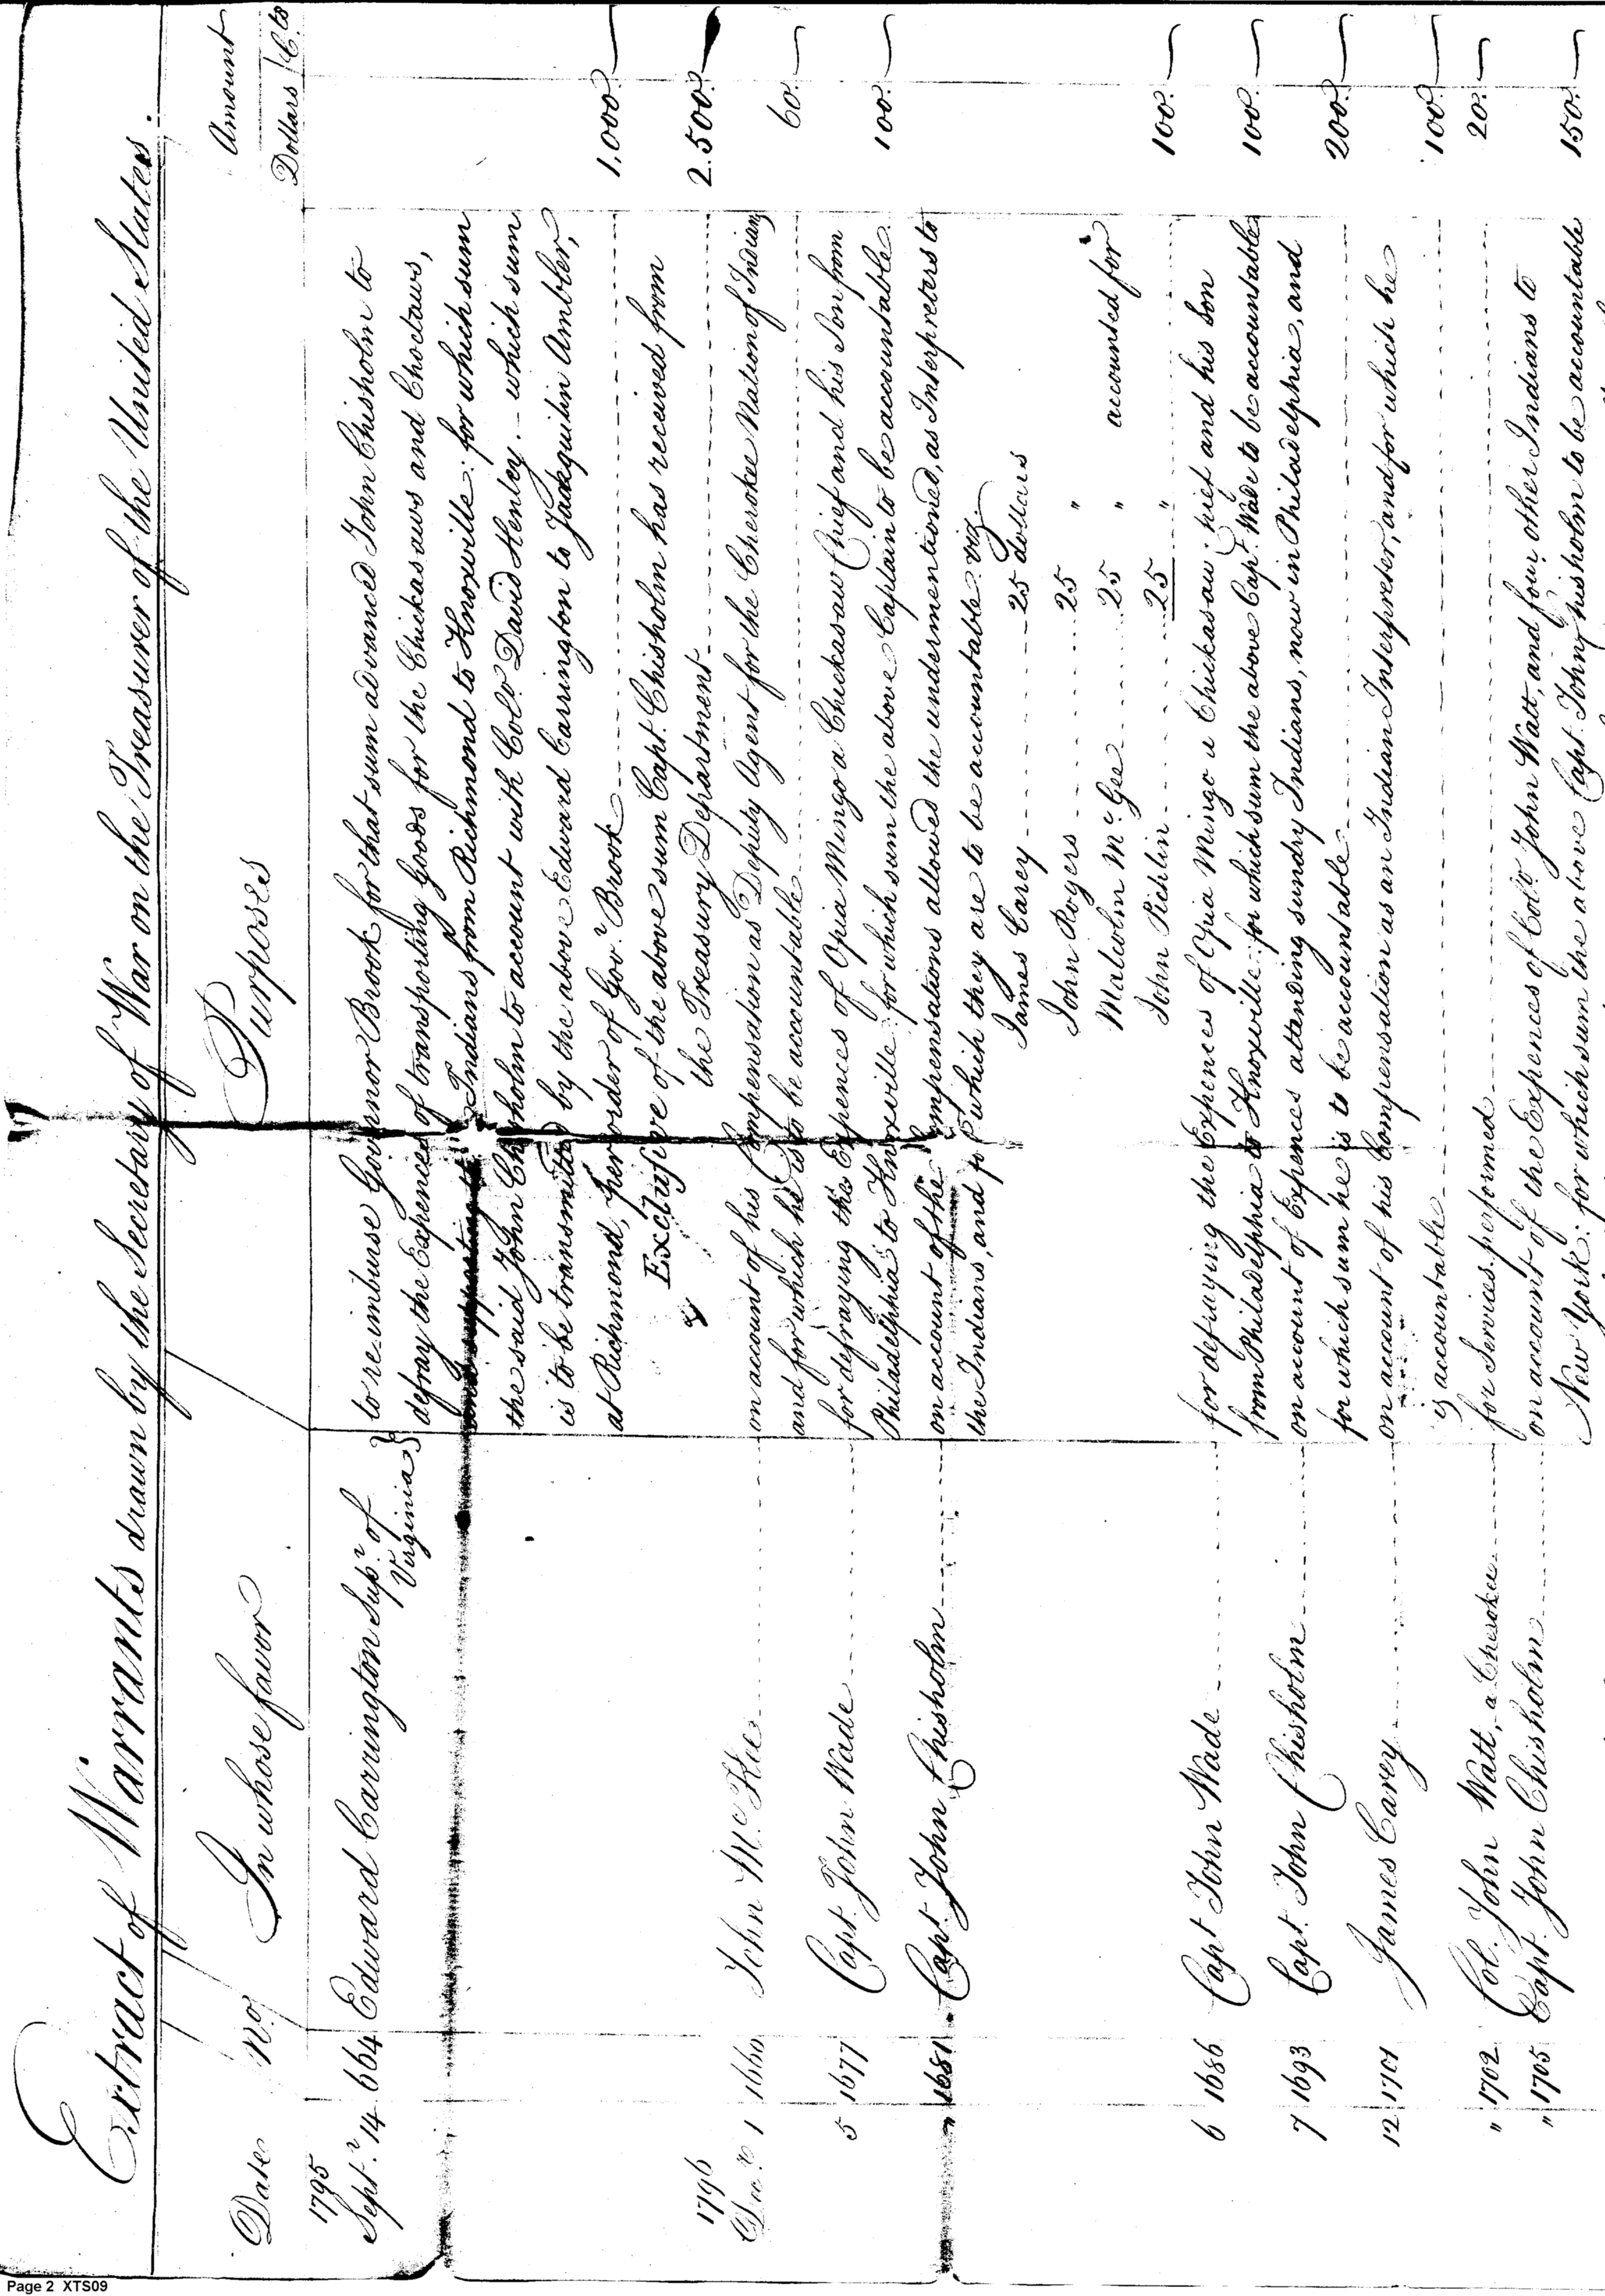 Extract of Warrants drawn by the Secretary of War on the Treasurer of the United States.
Date No. In whose favor Purposes Amount
Dollars Cts
1795
Septr. 14 664 Edward Carrington Supr. of Virginia to reimburse Governor Brook for that sum advanced John Chisholm to
defray the Expences of transporting goods for the Chickasaws and Choctaws,
Indians from Richmond to Knoxville: for which sum
the said John Chisholm to account with Colo. David Henley. - which sum
is to be transmitted by the above Edward Carrington to Jacequilin Ambler,
at Richmond, per order of Govr. Brook 1,000.
Exclusive of the above sum Capt. Chisholm has received from
the Treasury Department 2.500.
1796
Decr. 1 1660 John McKee on account of his Compensation as Deputy Agent for the Cherokee Nation of Indians
and for which he is to be accountable 60.
5 1677 Capt. John Wade for defraying the Expences of Opia Mingo a Chickasaw Chief and his Son from
Philadelphia to Knoxville: for which sum the above Captain to be accountable 100.
" 1681 Capt. John Chisholm on account of the Compensations allowed the undermentioned, as Interpreters to
the Indians, and for which they are to be accountable. viz.
James Carey 25 dollars
John Rogers 25 "
Malcolm McGee 25 " accounted for
John Pichlin 25 " 100.
6 1686 Capt John Wade for defraying the Expences of Opia Mingo a Chickasaw chief and his son
from Philadelphia to Knoxville: for which sum the above Capt. Wade to be accountable 100.
7 1693 Capt. John Chisholm on account of Expences attending sundry Indians, now in Philadelphia, and
for which sum he is to be accountable 200.
12 1701 James Carey on account of his Compensation as an Indian Interpreter, and for which he
is accountable 100.
" 1702 Col. John Watt, a Cherokee for Services performed 20.
" 1705 Capt. John Chisholm on account of the Expences of Colo. John Watt, and four other Indians to
New York: for which sum the above Capt. John Chisholm to be accountable 150.
Page 2 XTS09